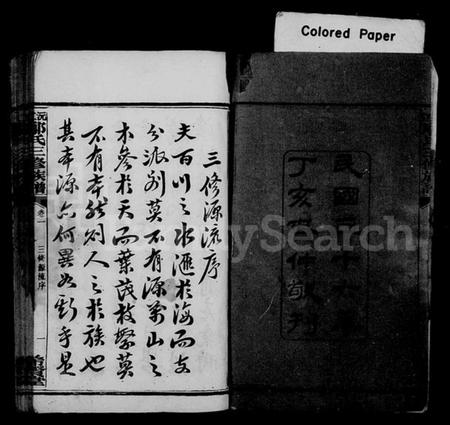 Colored Paper
民國三十六
丁亥仲敬刊
三修源流序
夫百川之水滙於海而支
分派別莫不有源萬山之
木參於天而葉茂枝繁莫
不有本然則人之於族也
其本源亦何異於斯乎是
鄭氏三修族譜
卷一
三修源流序
一
FamilySearch